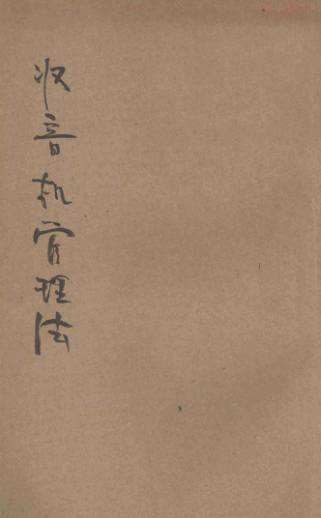 收音机管理法